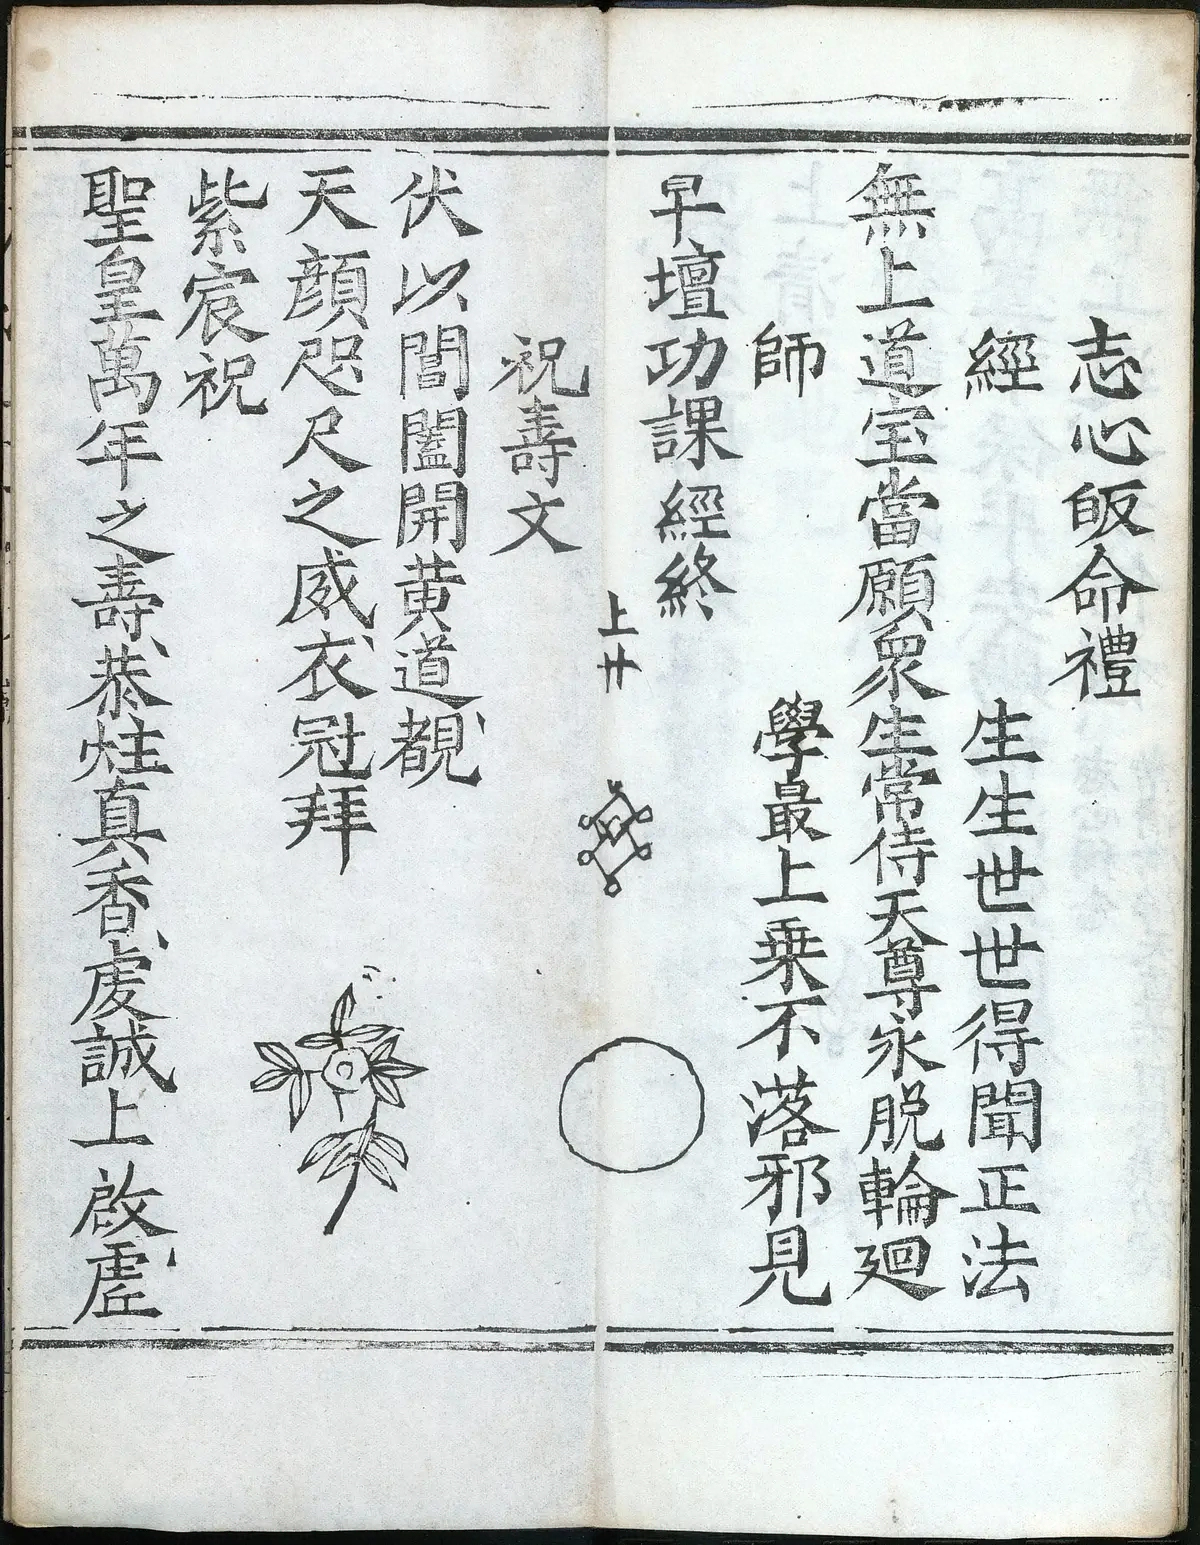 志心皈命禮
經　生生世世得聞正法
無上道宝當願衆生常侍天尊永脱輪廻
師　學最上乗不落邪見
早壇功課經終
上廾
祝壽文
伏以閶闔開黄道、覩
天顔咫尺之威、衣冠拜
紫宸祝
聖皇萬年之壽、恭炷真香、虔誠上啟、虚